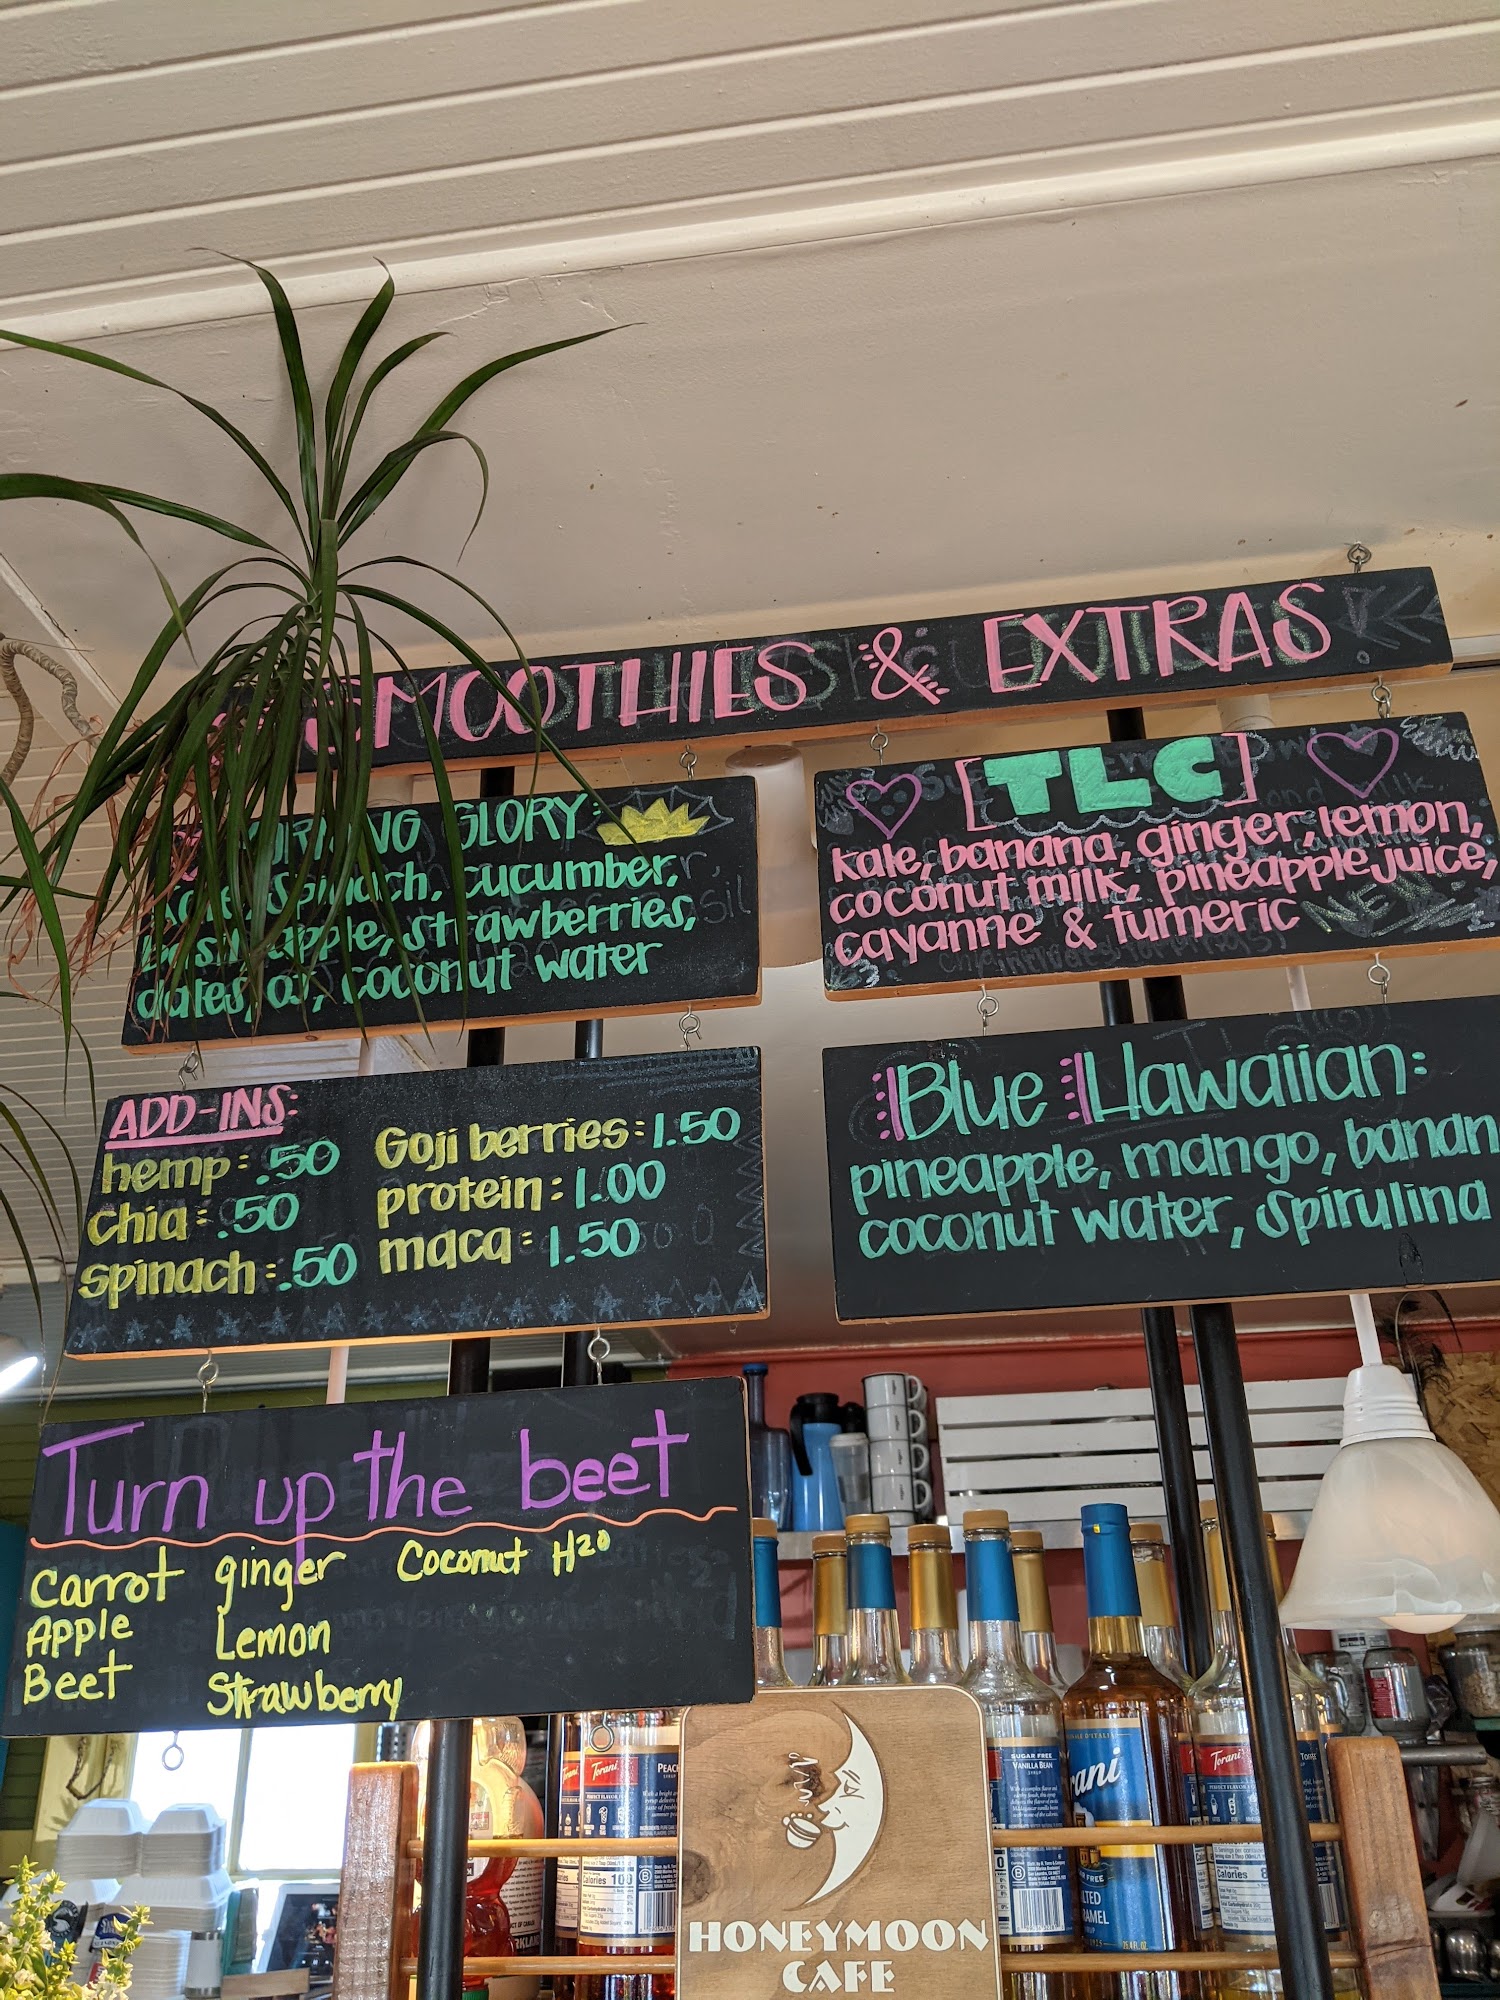 SMOOTHIES & EXTRAS
MORNING GLORY:
kale, spinach, cucumber,
basil, apple, strawberries,
dates, oj, coconut water
[TLC]
kale, banana, ginger, lemon,
coconut milk, pineapple juice,
cayanne & tumeric
NEW
ADD-INS:
hemp: .50
chia: .50
spinach: .50
Goji berries: 1.50
protein: 1.00
maca: 1.50
Blue Hawaiian:
pineapple, mango, banan
coconut water, spirulina
Turn up the beet
Carrot ginger Coconut H2O
Apple Lemon
Beet Strawberry
HONEYMOON
CAFE
Torani
PEACH
Calories 100
SUGAR FREE
VANILLA BEAN
SYRUP
rani
Torani
Calories